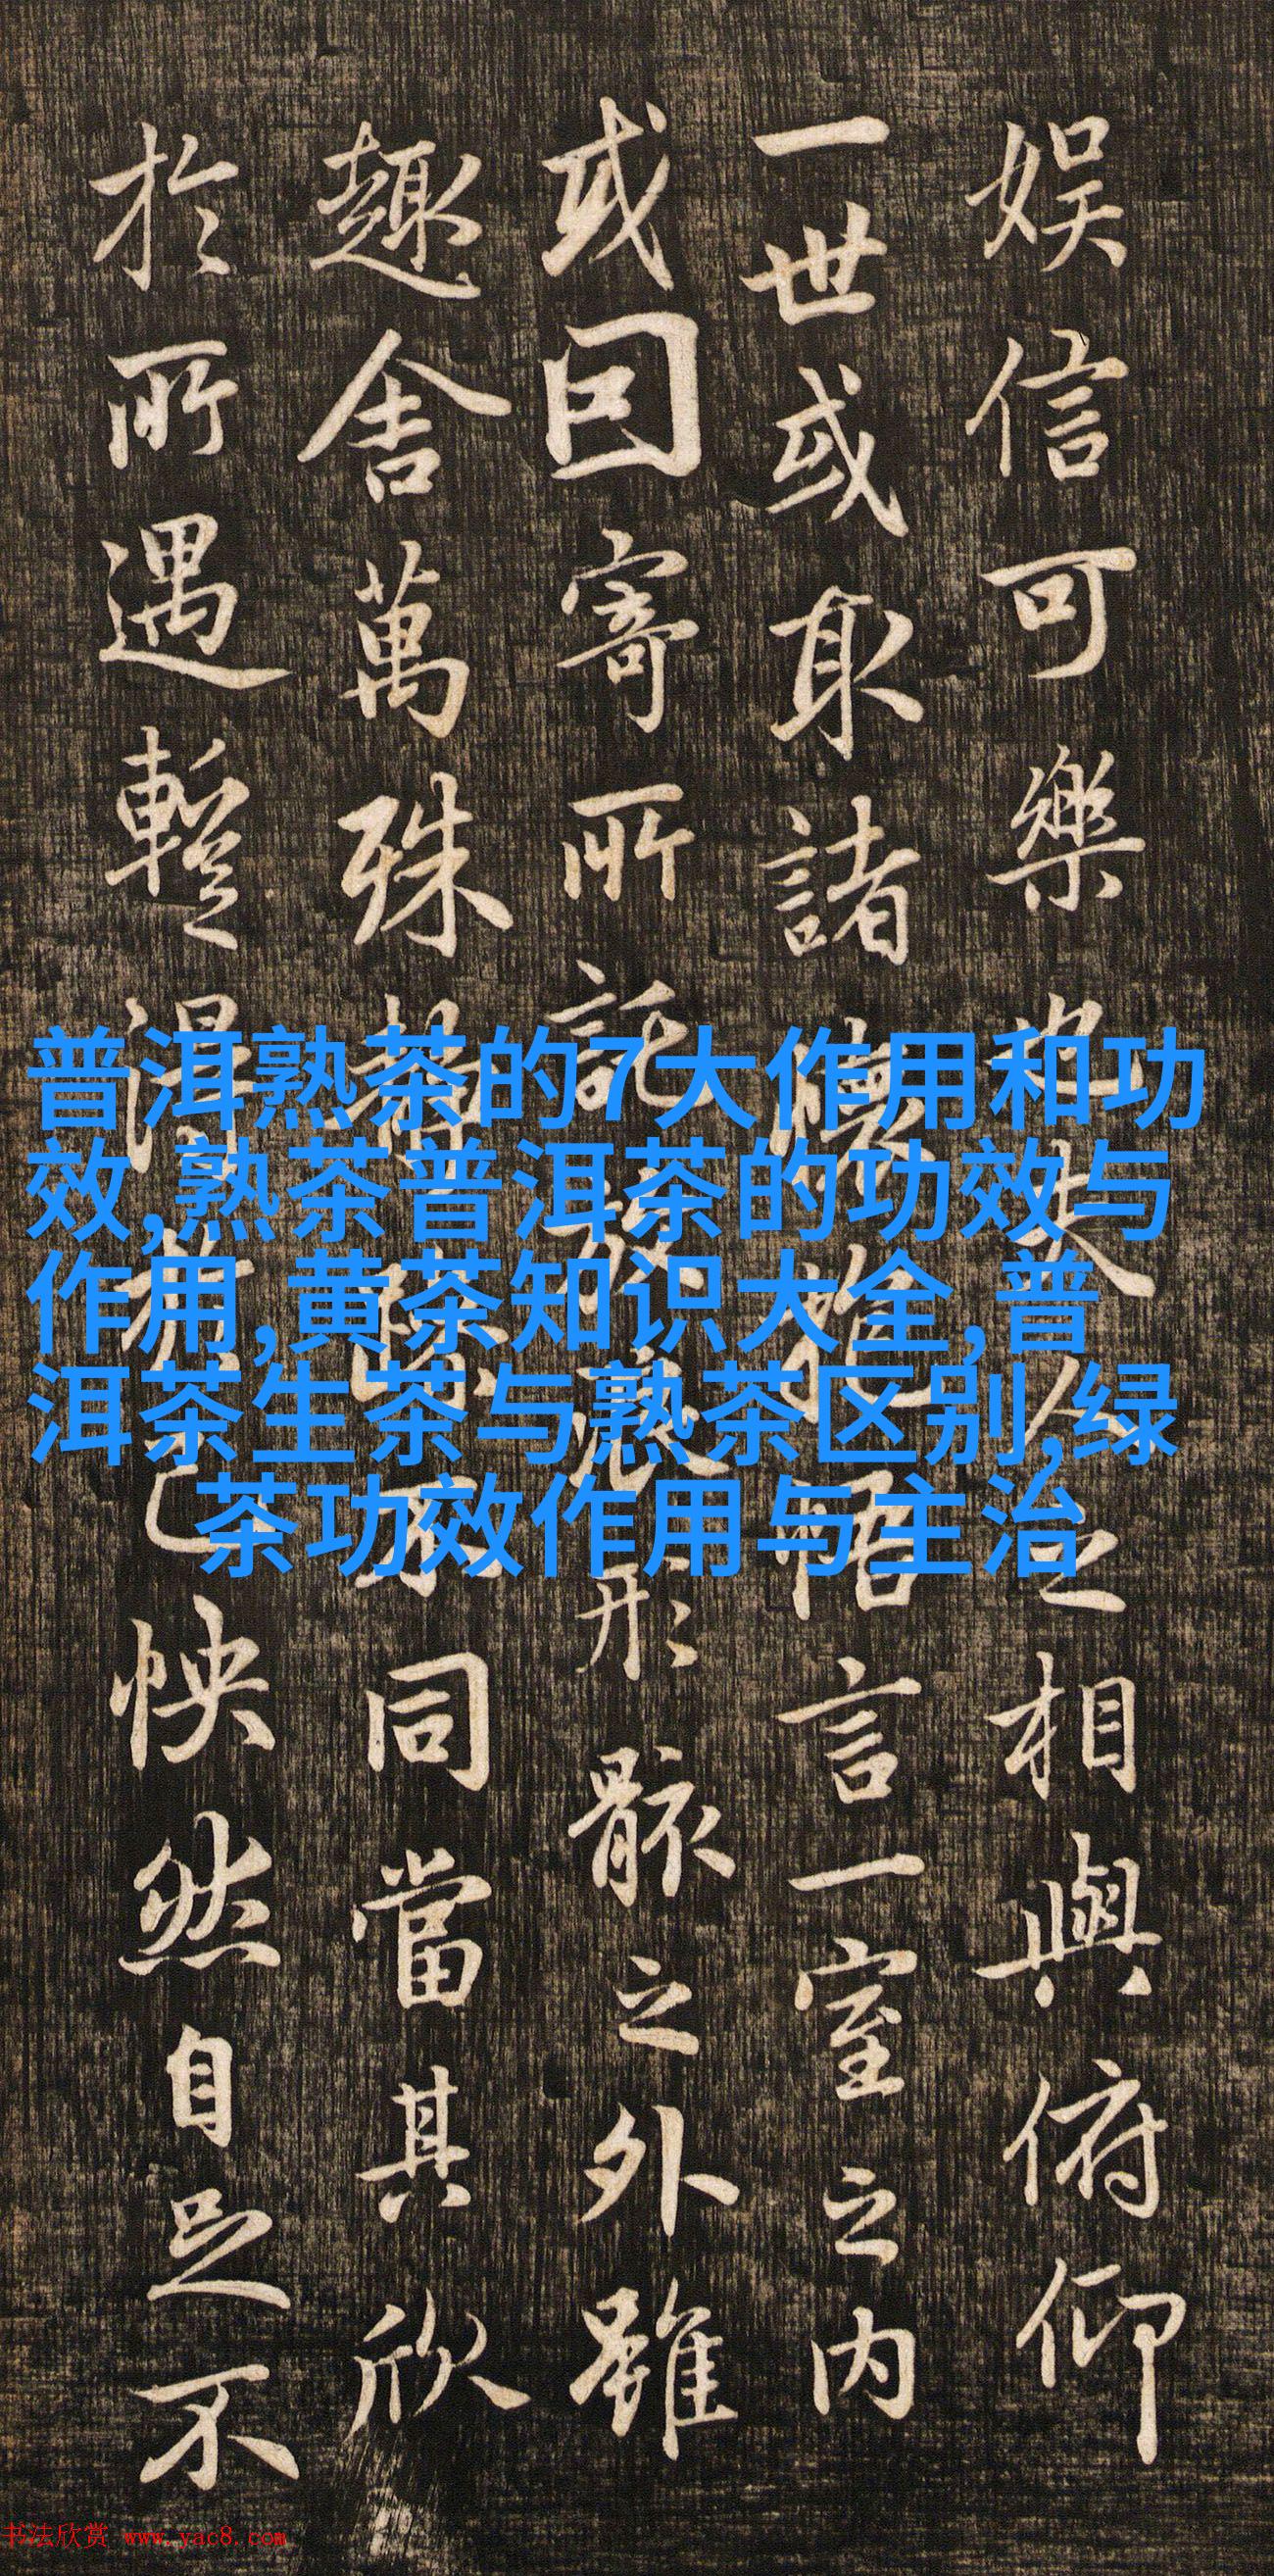 娱信可樂也夫人之相與俯仰
一世或取諸懷抱悟言一室之内
或因寄所託放浪形骸之外雖
趣舍萬殊靜躁不同當其欣
於所遇蹔得於己怏然自足不
普洱熟茶的7大作用和功
效,熟茶普洱茶的功效与
作用,黄茶知识大全,普
洱茶生茶与熟茶区别,绿
茶功效作用与主治
书法欣赏 www.yac8.com